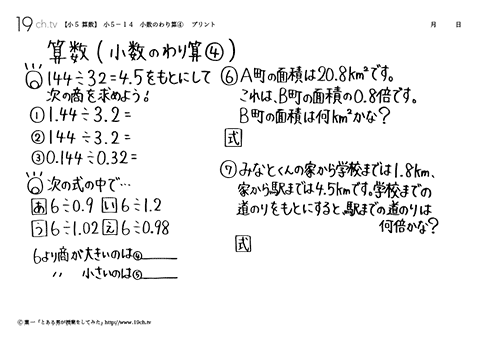 19ch.tv 【小5 算数】 小5-14 小数のわり算④ プリント 月 日
算数(小数のわり算④)
144÷32=4.5をもとにして
次の商を求めよう!
① 1.44÷3.2=
② 144÷3.2=
③ 0.144÷0.32=
次の式の中で…
あ 6÷0.9 い 6÷1.2
う 6÷1.02 え 6÷0.98
6より商が大きいのは④
〃 小さいのは⑤
⑥ A町の面積は20.8km²です。
これは、B町の面積の0.8倍です。
B町の面積は何km²かな?
式
⑦ みなとくんの家から学校までは1.8km、
家から駅までは4.5kmです。学校までの
道のりをもとにすると、駅までの道のりは
何倍かな?
式
© 葉一「とある男が授業をしてみた」http://www.19ch.tv